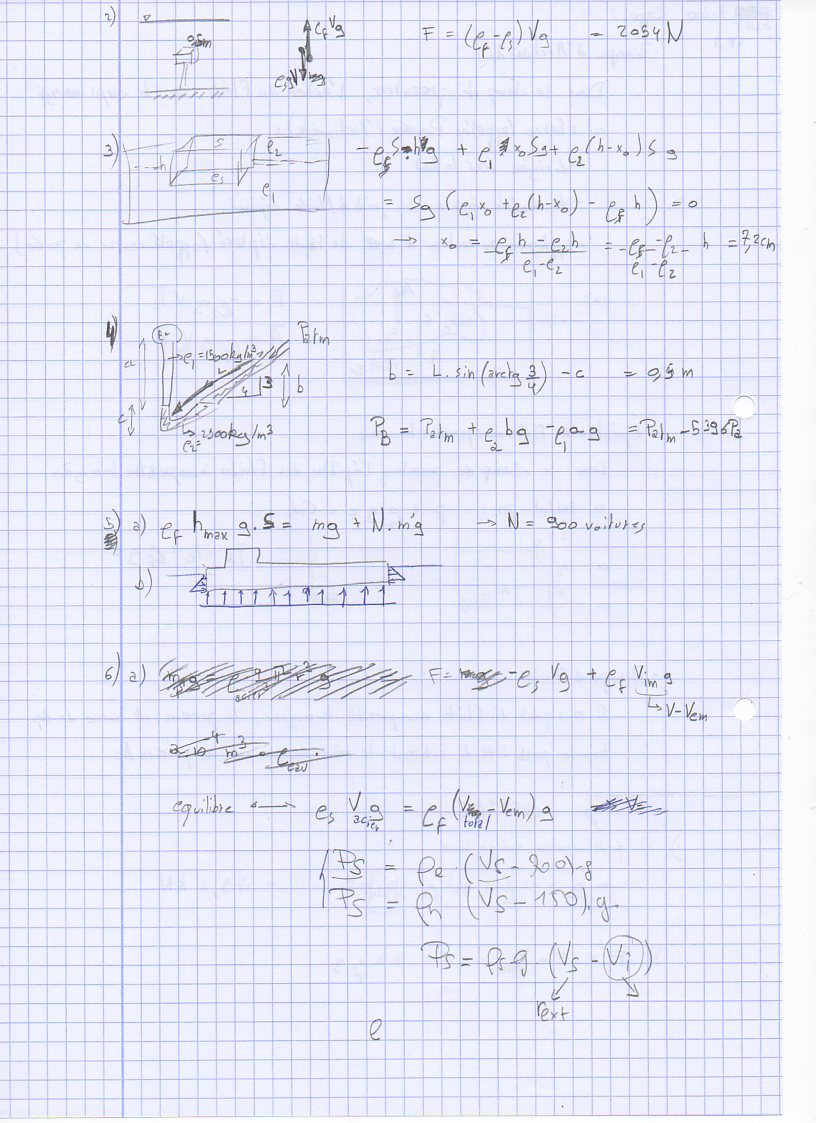 2) 0,5m ρfVg F = (ρf-ρs) Vg = 2054 N
ρsgV
3) S ρ2 -ρsS h g + ρ1 x0 Sg + ρ2(h-x0) S g
h ρs ρ1
= Sg (ρ1 x0 + ρ2(h-x0) - ρs h) = 0
→ x0 = ρs h - ρ2 h / ρ1-ρ2 = ρs-ρ2 / ρ1-ρ2 h = 7,2cm
4) Patm
a ρ1=1500kg/m³ L 4 3 b
b = L. sin(arctg 3/4) - c = 0,5 m
c ρ2=2500kg/m³
PB = Patm + ρ2 bg - ρ1 a g = Patm - 5396Pa
5) a) ρf hmax g. S = mg + N. m'g → N = 900 voitures
b)
6) a) F = -ρs Vg + ρf Vim g
↳ V-Vem
equilibre ρs Vacier g = ρf (Vtotal - Vem) g
Ps = ρe (Vs - 200).g
Ps = ρh (Vs - 150).g
Ps = ρs g (Vs - Vi)
rext
ρ